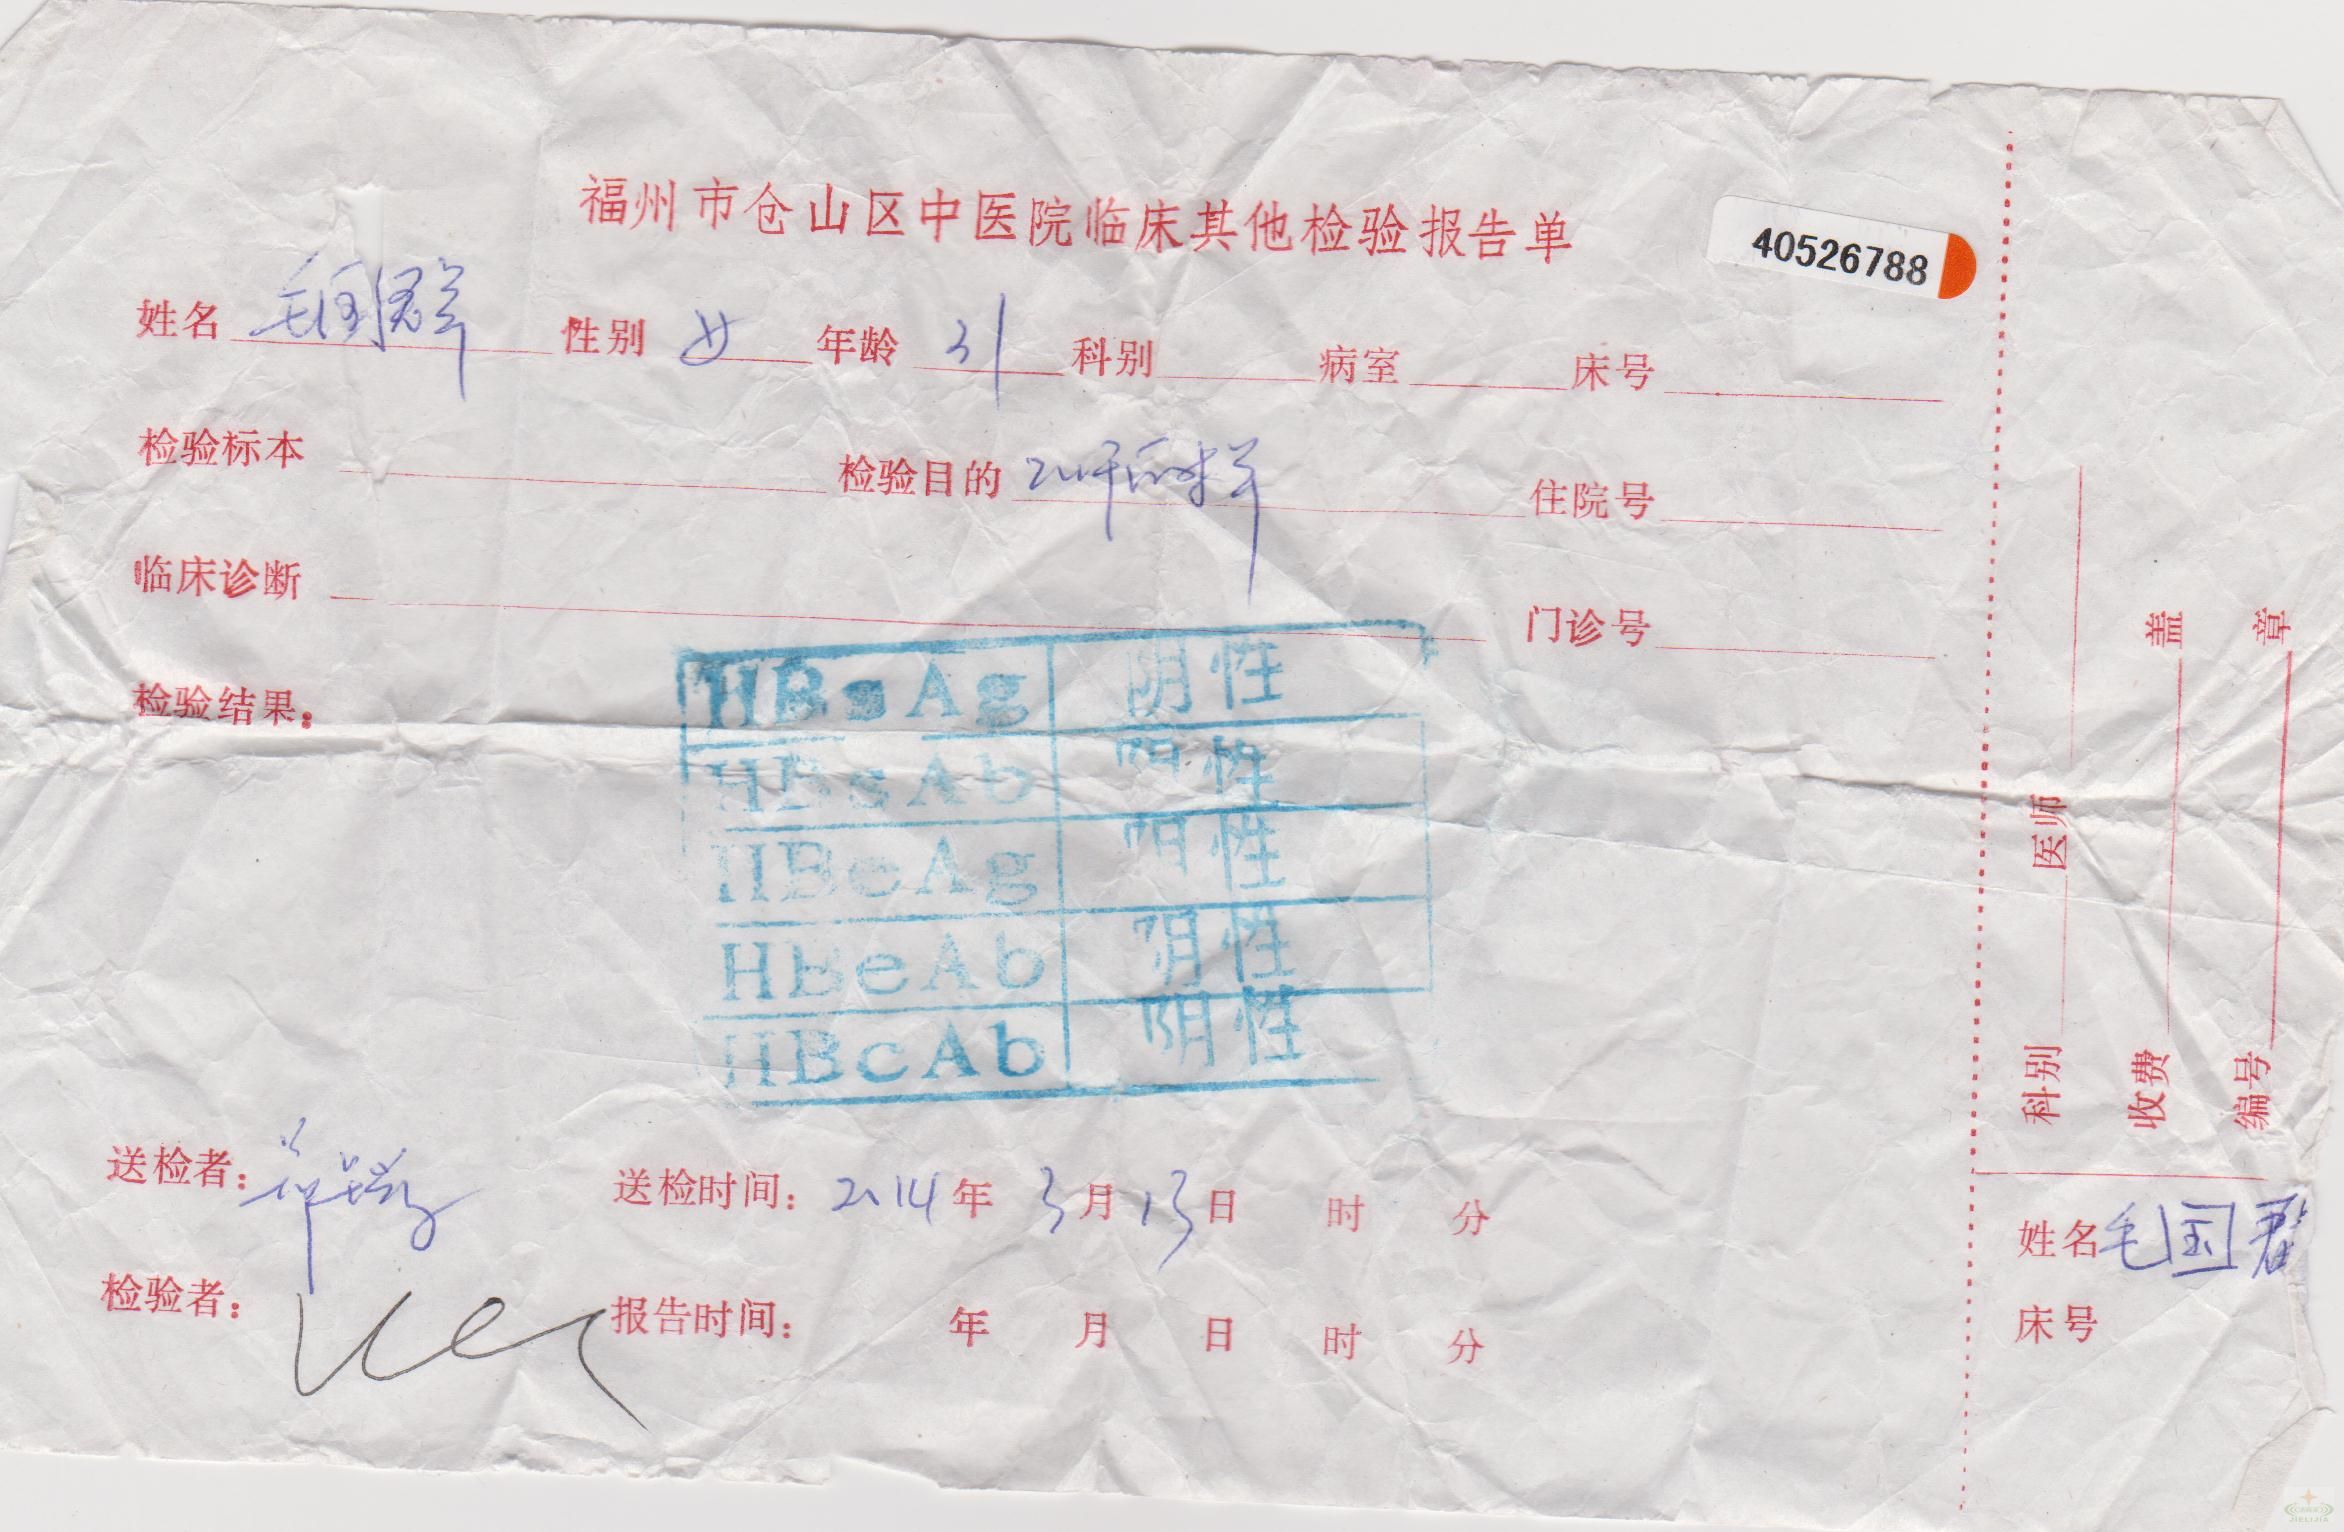 福州市仓山区中医院临床其他检验报告单
40526788
姓名 毛国群 性别 女 年龄 31 科别 病室 床号
检验标本 检验目的 住院号
临床诊断 门诊号
检验结果：
HBsAg 阴性
HBsAb 阳性
HBeAg 阴性
HBeAb 阴性
HBcAb 阴性
送检者： 送检时间：2014年3月13日 时 分
检验者： 报告时间： 年 月 日 时 分
科别 医师
收费 盖
编号 章
姓名 毛国君
床号
JIELIJIA